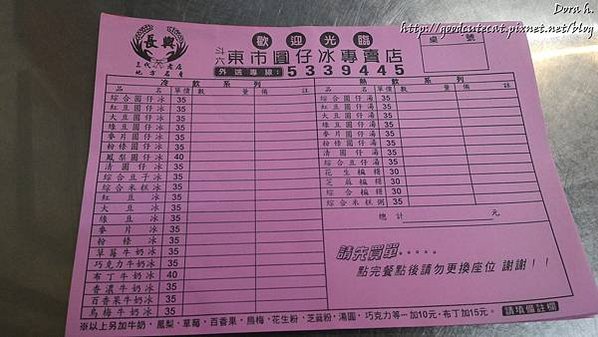 Dora h.
http://goodcutecat.pixnet.net/blog
歡迎光臨
長興
斗六 東市圓仔冰專賣店
桌號
外送專線: 5339445
冷飲系列
品名 單價 數量 備註
綜合圓仔冰 35
紅豆圓仔冰 35
大豆圓仔冰 35
綠豆圓仔冰 35
麥片圓仔冰 35
粉條圓仔冰 35
鳳梨圓仔冰 40
清圓仔冰 35
綜合豆子冰 35
綜合米糕冰 35
紅豆冰 35
大豆冰 35
綠豆冰 35
麥片冰 35
粉條冰 35
草莓牛奶冰 35
巧克力牛奶冰 35
布丁牛奶冰 40
香濃牛奶冰 35
百香果牛奶冰 35
烏梅牛奶冰 35
熱飲系列
品名 單價 數量 備註
綜合圓仔湯 35
紅豆圓仔湯 35
大豆圓仔湯 35
綠豆圓仔湯 35
麥片圓仔湯 35
粉條圓仔湯 35
清圓仔湯 35
綜合豆仔湯 35
花生 30
芝麻 30
綜合 30
綜合米糕粥 35
總計 元
請先買單‧‧‧‧‧
點完餐點後請勿更換座位 謝謝!!
※以上另加牛奶,鳳梨,草莓,百香果,烏梅,花生粉,芝蔴粉,湯圓,巧克力等一加10元,布丁加15元。
請填備註欄